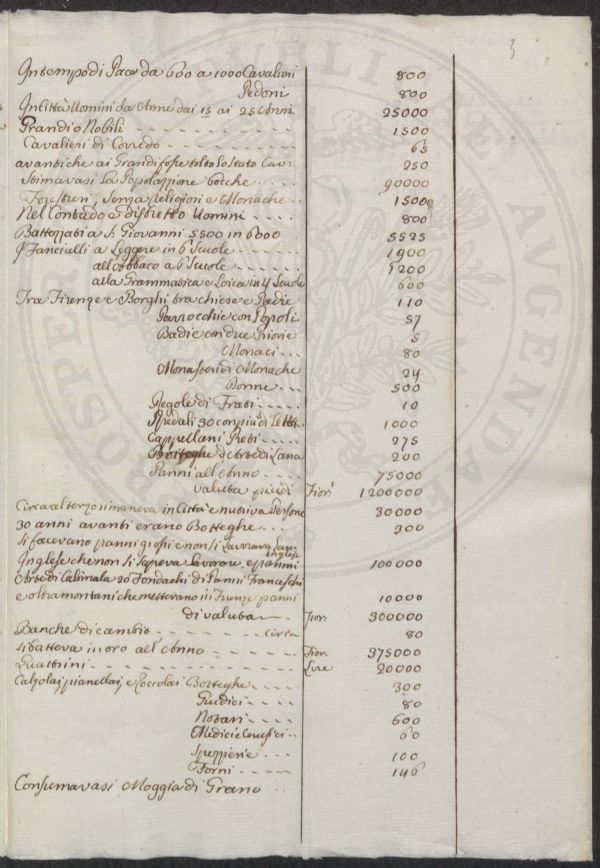 3
In tempo di Pace da 600 a 1000 Cavalieri 800
Pedoni 800
In Città Uomini da Arme dai 15 ai 25 Anni 25000
Grandi o Nobili 1500
Cavalieri di Corredo 65
avanti che ai Grandi fosse tolto lo Stato Cav: 250
Stimavasi La Popolazzione bocche 90000
Forestieri, senza Religiosi e Monache 1500
Nel Contado e distretto Uomini 800
Battezzati a S. Giovanni 5500 in 6000 5525
Fanciulli a Leggere in 6 Scuole 1900
all'Abbaco a 6 Scuole 1200
alla Grammatica e Loica in 4 Scuole 600
Tra Firenze e Borghi tra chiese e Badie 110
Parrocchie con Popoli 57
Badie con due Priorie 5
Monaci 80
Monasteri di Monache 24
Donne 500
Regole di Frati 10
Spedali 30 con più di Letti 1000
Cappellani Preti 275
Botteghe d'Arte di Lana 200
Panni all'Anno 75000
valuta più di Fior: 1200000
Circa al terzo rimaneva in Città e nutriva Persone 30000
30 anni avanti erano Botteghe 300
si facevano panni grossi e non si Lavorava Lana
Inglese che non si sapeva lavorare e panni 100000
Arte di Calimala 20 Fondachi di Panni Franceschi
e oltramontani che mettevano in Firenze panni 10000
di valuta Fior: 300000
Banche di cambio circa 80
si batteva in oro all'Anno Fior. 375000
Quattrini Lire 20000
Calzolaj, pianellaj, e Zoccolai Botteghe 300
Giudici 80
Notari 600
Medici e Cerusici 60
Spezzierie 100
Forni 146
Consumavasi Moggia di Grano
PROSPERITATI PUBLICAE AVGENDAE